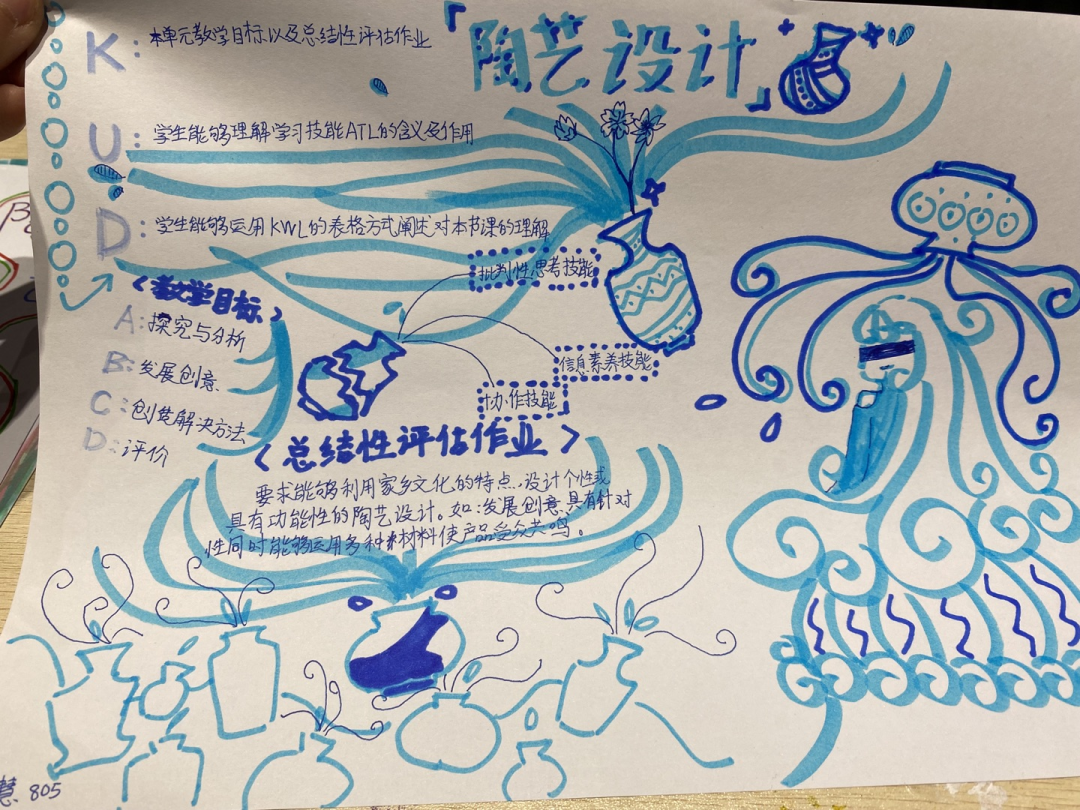 「陶艺设计」
K: 本单元教学目标以及总结性评估作业
U: 学生能够理解学习技能ATL的含义与作用
D: 学生能够运用KWL的表格方式阐述对本节课的理解
批判性思考技能
信息素养技能
协作技能
<教学目标>
A: 探究与分析
B: 发展创意
C: 创造解决方法
D: 评价
<总结性评估作业>
要求能够利用家乡文化的特点,设计个性或
具有功能性的陶艺设计。如:发展创意具有针对
性同时能够运用多种材料使产品受众共鸣。
慧 805